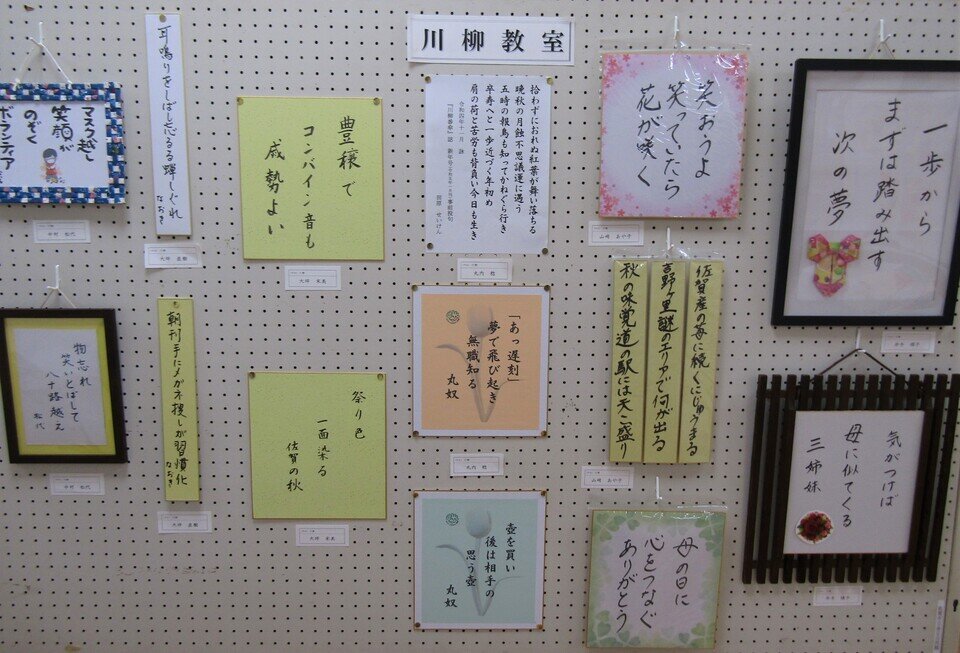 川柳教室
マスク越し
笑顔が
のぞく
ボランティア
耳鳴りをしばし忘るる蟬しぐれ
なおき
豊穣で
コンバイン音も
威勢よい
拾わずにおられぬ紅葉が舞い落ちる
晩秋の月蝕不思議運に遇う
五時の報鳥も知ってかねぐら行き
卒寿へと一歩近づく年初め
肩の荷と苦労も背負い今日も生き
笑おうよ
笑っていたら
花が咲く
一歩から
まずは踏み出す
次の夢
中村 松代
大坪 直樹
丸内 稔
山﨑 あや子
物忘れ
笑いとばして
八十路越え
松代
朝刊手にメガネ捜しが習慣化
なおき
祭り色
一面染る
佐賀の秋
「あっ遅刻」
夢で飛び起き
無職知る
丸奴
佐賀産の苺に続くにじゅうまる
吉野ヶ里謎のエリアで何が出る
秋の味覚道の駅には天こ盛り
気がつけば
母に似てくる
三姉妹
中村 松代
大坪 直樹
丸内 稔
山﨑 あや子
壺を買い
後は相手の
思う壺
丸奴
母の日に
心をつなぐ
ありがとう